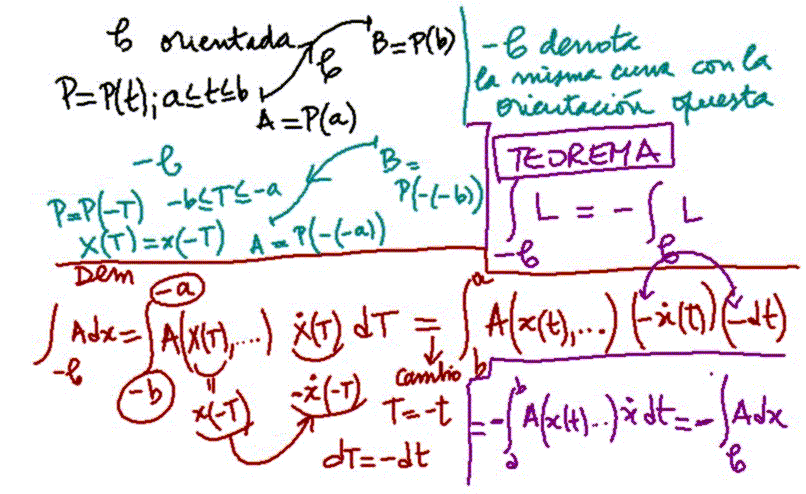 𝒞 orientada
B = P(b)
𝒞
P = P(t); a ≤ t ≤ b
A = P(a)
-𝒞 denota
la misma curva con la
orientación opuesta
-𝒞
B =
P(-(-b))
P = P(-T) -b ≤ T ≤ -a
X(T) = x(-T)
A = P(-(-a))
TEOREMA
∫_{-𝒞} L = - ∫_{𝒞} L
Dem
∫_{-𝒞} A dx = ∫_{-b}^{-a} A(X(T),...) Ẋ(T) dT = ∫_{b}^{a} A(x(t),...) (-ẋ(t)) (-dt)
x(-T) -ẋ(-T)
cambio
T = -t
dT = -dt
= - ∫_{a}^{b} A(x(t)...) ẋ dt = - ∫_{𝒞} A dx